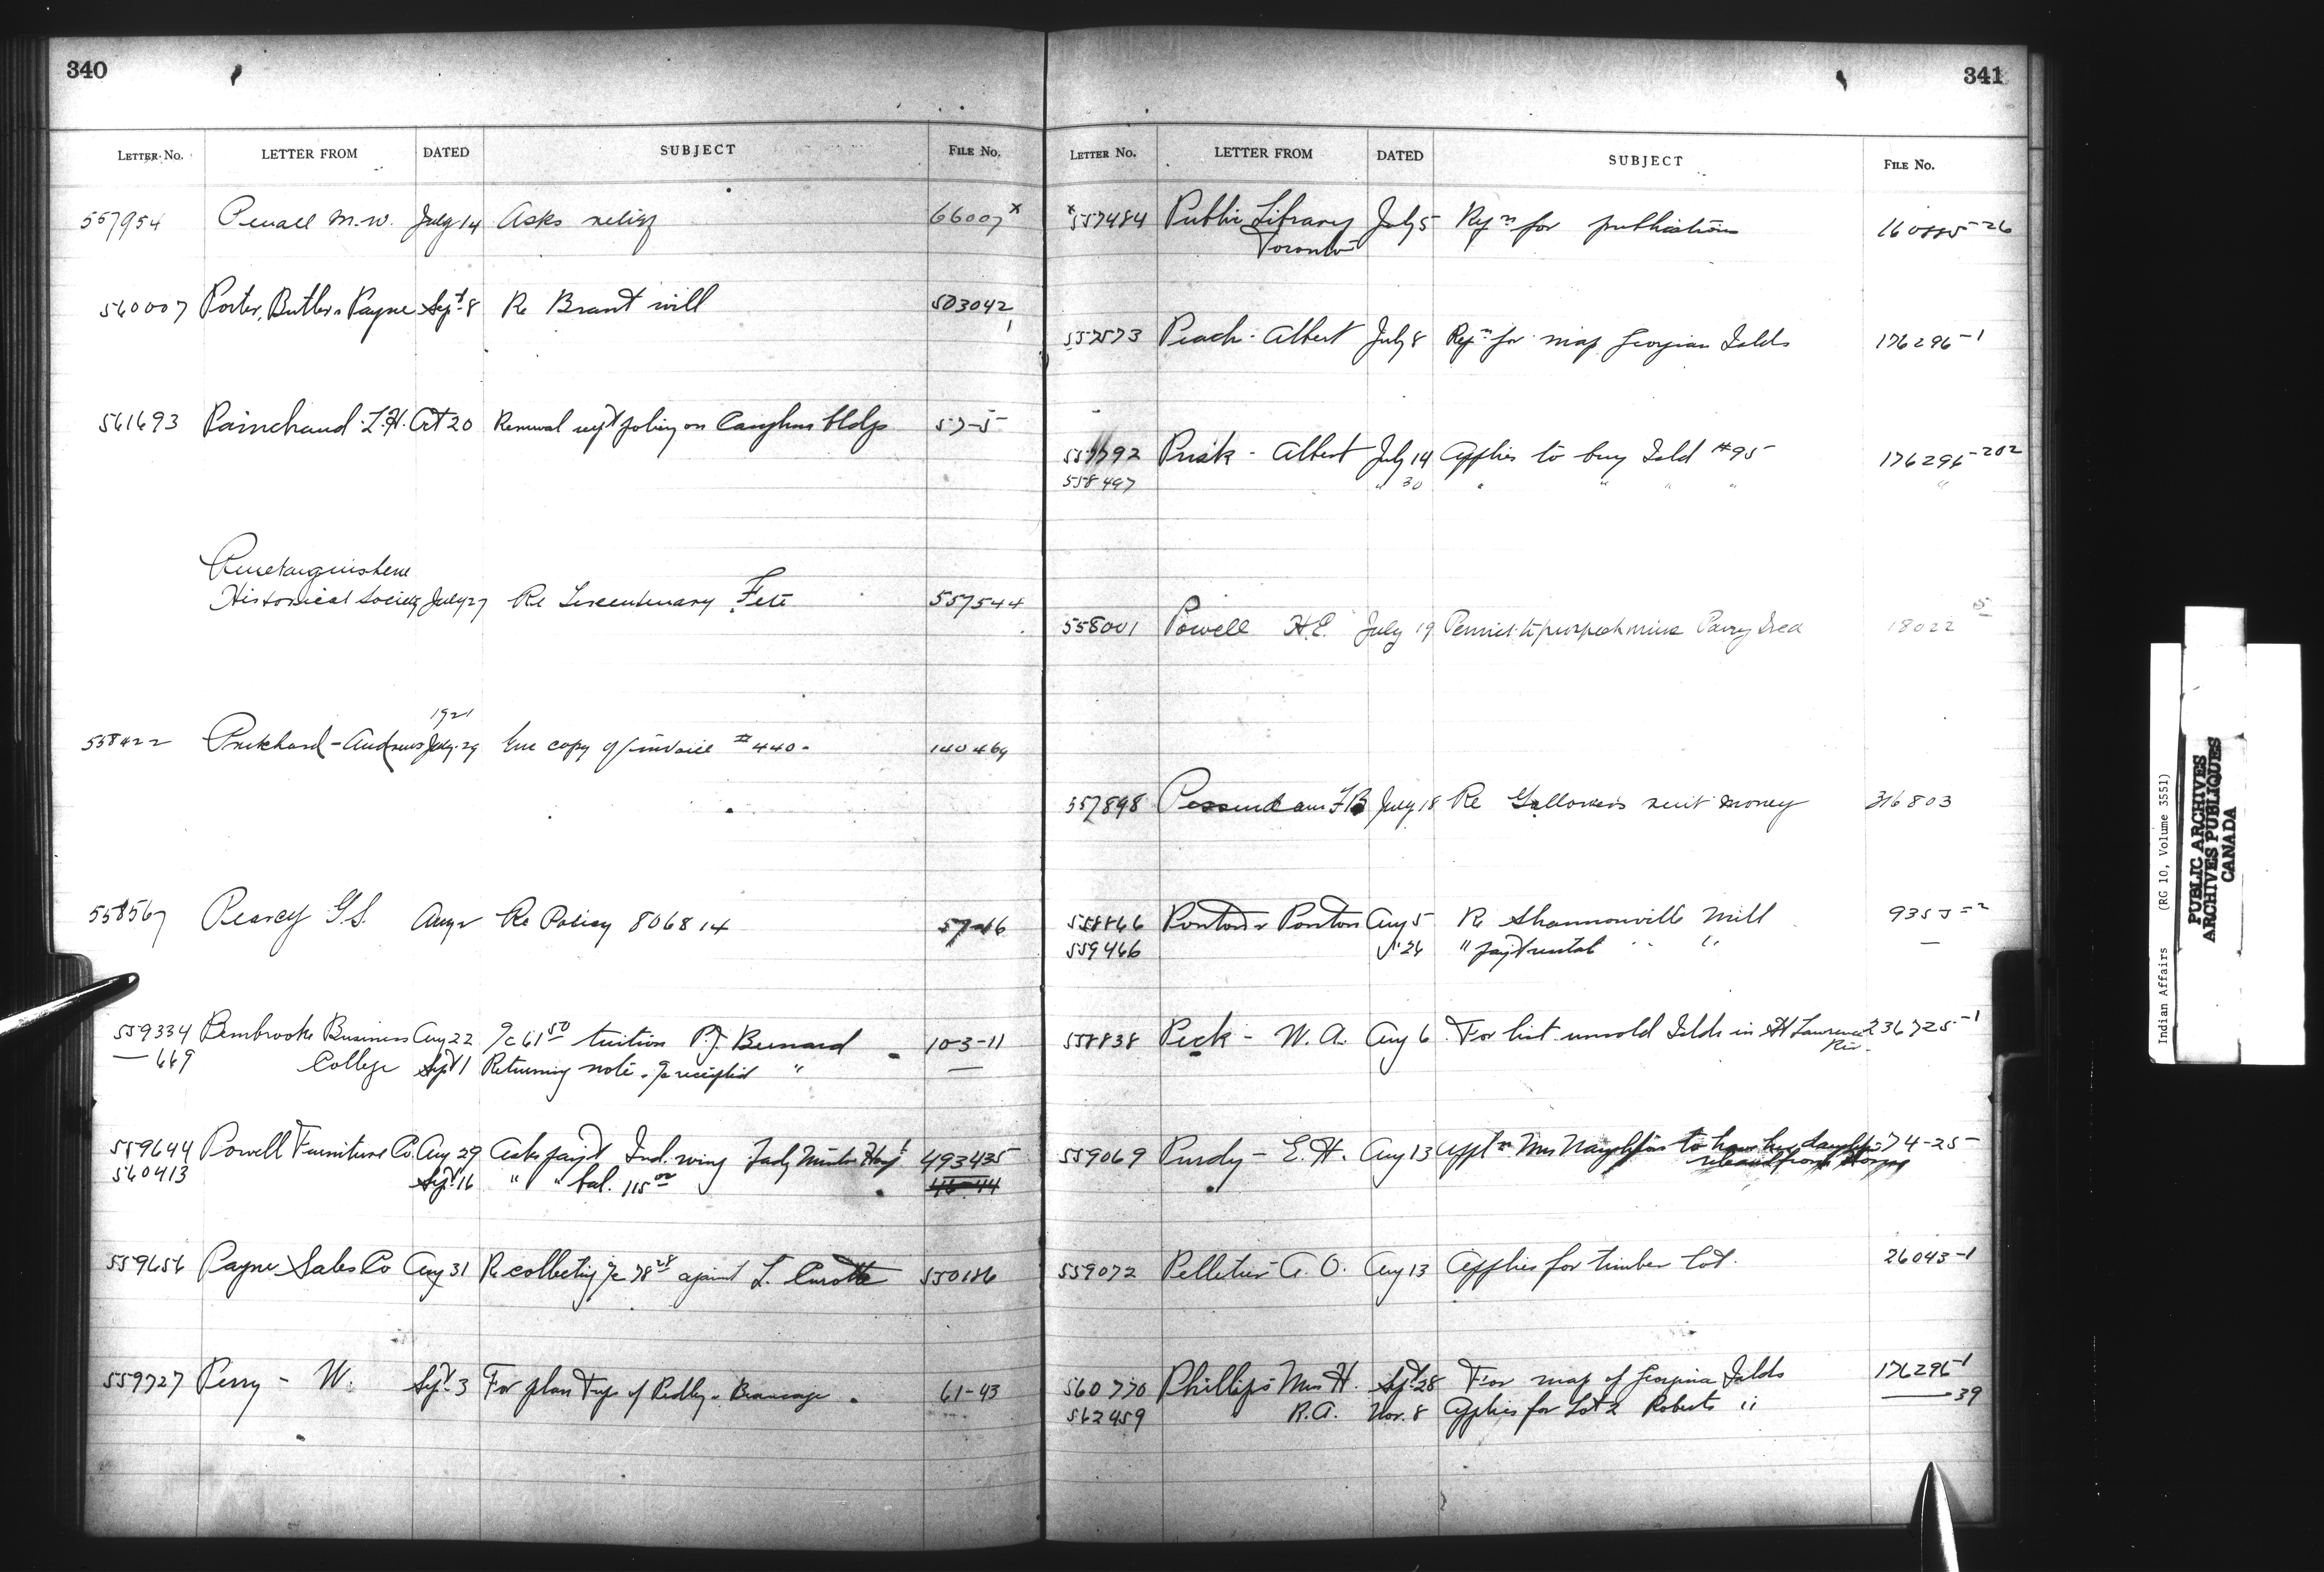 340
LETTER No. LETTER FROM DATED SUBJECT FILE No.
557954 M. W. July 14 Asks relief 66007 x
560007 Porter, Butler & Payne Sept 8 Re Brant will 503042
1
561693 Painchaud L.H. Oct 20 Renewal policy on bldgs 57-5
Penetanguishene
Historical Society July 27 Re Tercentenary Fete 557544
1921
558422 Pritchard-Andrews July 29 copy of invoice #440 140469
558567 Pearcy G S. Aug 2 Re Policy 806814 57-16
559334 Pembrooke Business Aug 22 a/c 61 50 tuition P.J. Bernard 10-3-11
— 669 College Sept 1 Returning note & a/c receipted " —
559644 Powell Furniture Co. Aug 29 Asks paymt Ind. wing Lady Minto Hosp 493435
560413 Sept 16 " " bal. 115 00 46-44
559656 Payne Sales Co Aug 31 Re collecting a/c 78 28 against L. 550186
559727 Perry - W. Sept 3 For plan Twps of Pedley & 61-43
341
LETTER No. LETTER FROM DATED SUBJECT FILE No.
x 557484 Public Library July 5 Reqn for publications 160885-26
Toronto
557573 Peach - Albert July 8 Reqn for map Georgian Islds 176296-1
557792 Prisk - Albert July 14 Applies to buy Isld #95 176296-202
558497 " 30 " " " " "
558001 Powell H.E. July 19 Permist to prospect mine Parry Isld 18022 5
557898 F B July 18 Re rent money 316803
558866 Ponton & Ponton Aug 5 Re Shannonville Mill 9355-2
559466 " 26 " paymt rental " " —
558838 Peck - W. A. Aug 6 For list unsold Islds in St Lawrence 236725-1
Riv.
559069 Purdy - E. H. Aug 13 Appln Mrs to have her daughter 74-25
559072 Pelletier A. O. Aug 13 Applies for timber lot. 26043-1
560770 Phillips Mrs H. Sept 28 For map of Georgina Islds 176296-1
562459 R.A. Nov. 8 Applies for Lot 2 Roberts " — 39
Indian Affairs (RG 10, Volume 3551)
PUBLIC ARCHIVES
ARCHIVES PUBLIQUES
CANADA